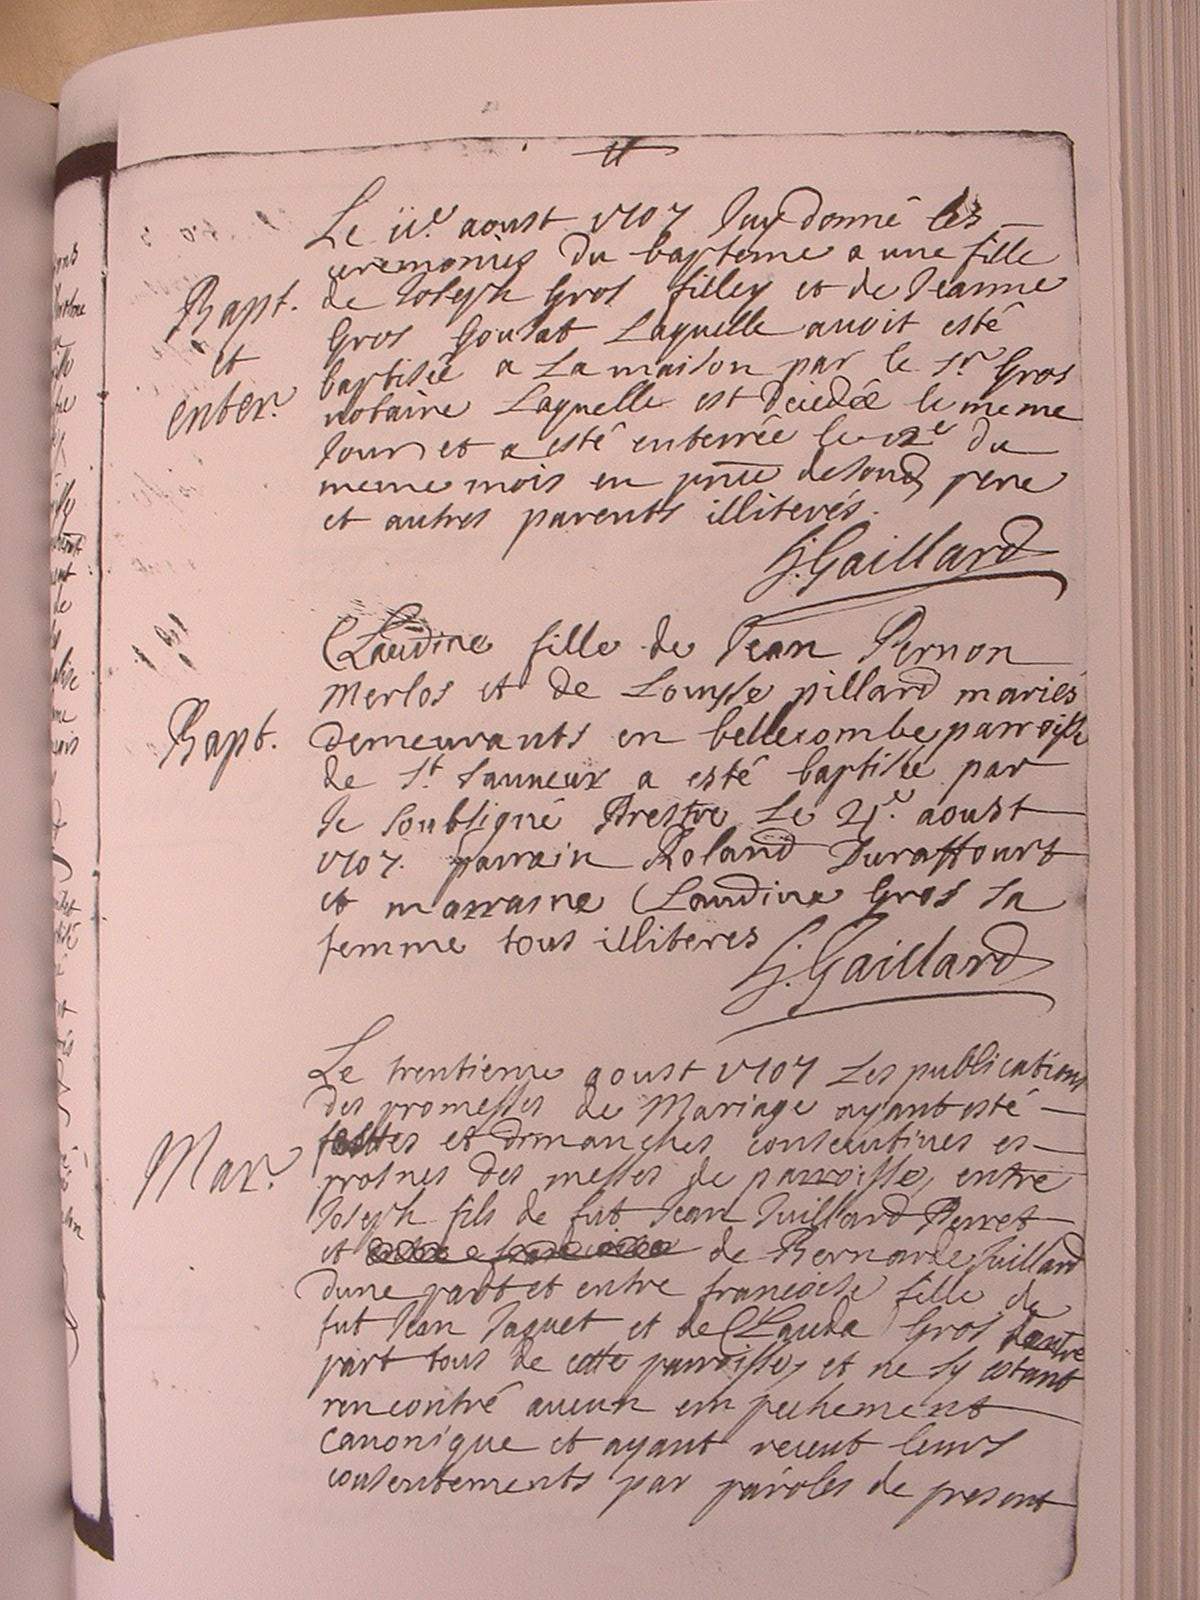 Le ii.e aoust 1707 J'ay donné les
ceremonies du bapteme a une fille
Bapt. de Joseph Gros filley et de Jeanne
Gros Goulat Laquelle avoit esté
et baptisée a La maison par le Sr Gros
enter. notaire Laquelle est décédée le meme
Jour et a esté enterrée le 12e du
meme mois en pnce de sond pere
et autres parents illiterés.
J. Gaillard
Claudine fille de Jean Pernon
Merlos et de Louyse pillard mariés
Bapt. demeurants en bellecombe parroisse
de St. Sauueur a esté baptisée par
Je Soubsigné Prestre Le 21.e aoust
1707. parrain Roland Duraffourt
et marraine Claudine Gros Sa
femme tous illiteres
J. Gaillard
Le trentieme aoust 1707 Les publications
des promesses de Mariage ayant esté
festes et dimanches consecutives es
Mar. prosnes des messes de parroisse, entre
Joseph fils de fut Jean Juillard Perret
et de Bernarde Juillard
dune part et entre francoise fille de
fut Jean Jaquet et de Clauda Gros dautre
part tous de cette parroisse, et ne sy estant
rencontré aucun empechement
canonique et ayant receut leurs
consentements par paroles de present